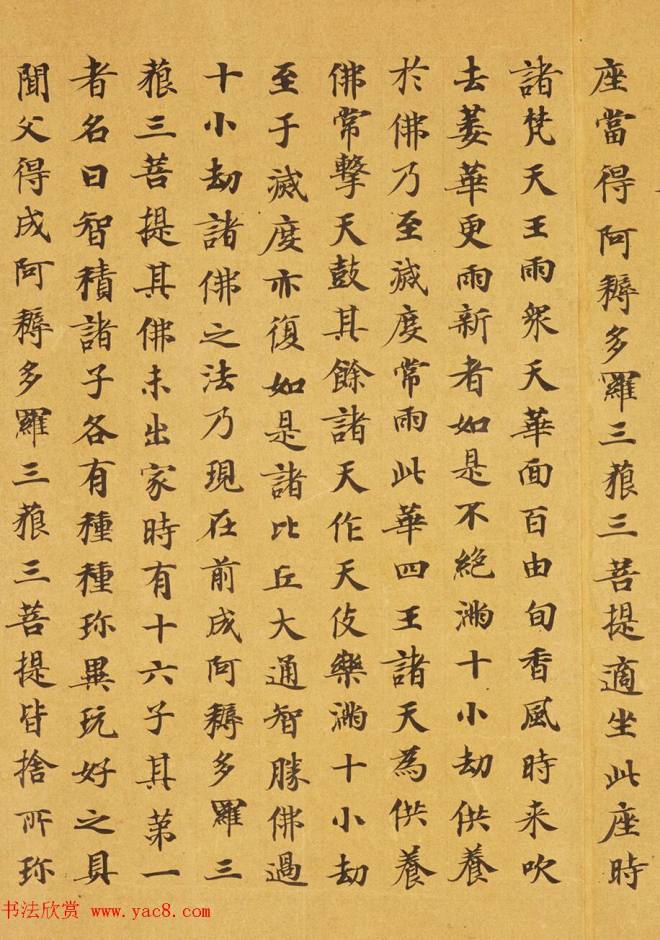 座當得阿耨多羅三藐三菩提適坐此座時
諸梵天王雨眾天華面百由旬香風時来吹
去萎華更雨新者如是不絕滿十小劫供養
於佛乃至滅度常雨此華四王諸天為供養
佛常擊天鼓其餘諸天作天伎樂滿十小劫
至于滅度亦復如是諸比丘大通智勝佛過
十小劫諸佛之法乃現在前成阿耨多羅三
藐三菩提其佛未出家時有十六子其第一
者名曰智積諸子各有種種珎異玩好之具
聞父得成阿耨多羅三藐三菩提皆捨所珎
书法欣赏 www.yac8.com